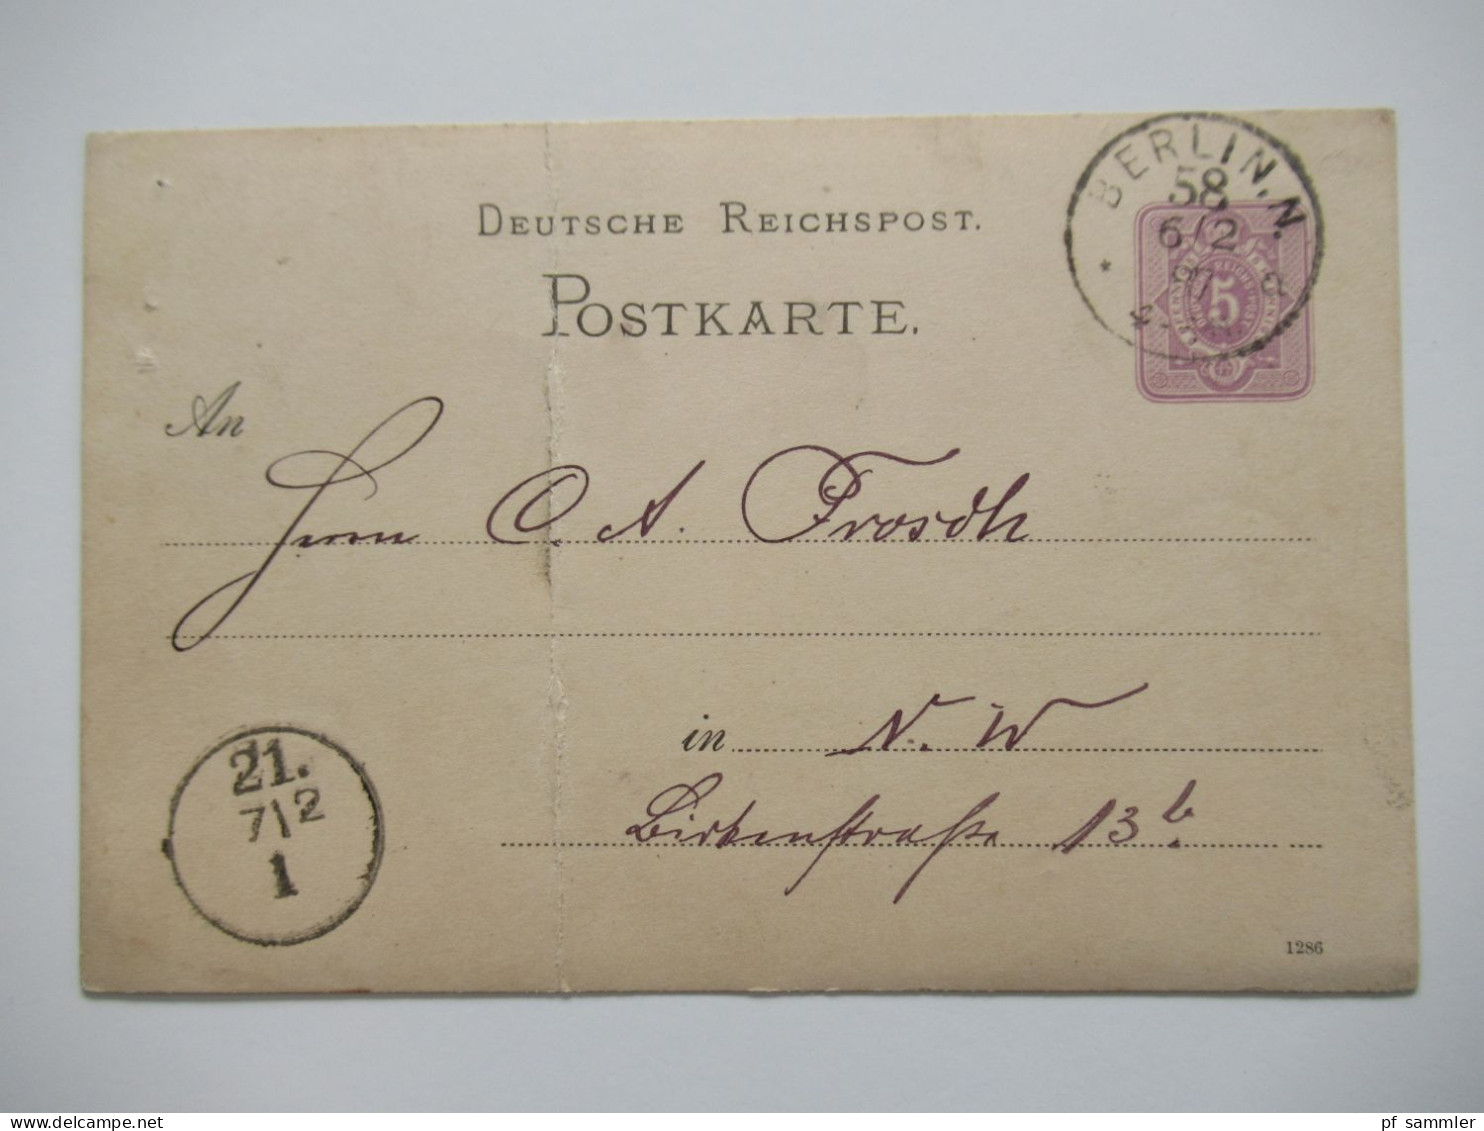 BERLIN, N.
58
6/2
87
DEUTSCHE REICHSPOST.
5
POSTKARTE.
An
Herrn C. A. Frosch
in N. W
Birkenstraße 13 b.
21.
7/2
1
1286
pf sammler